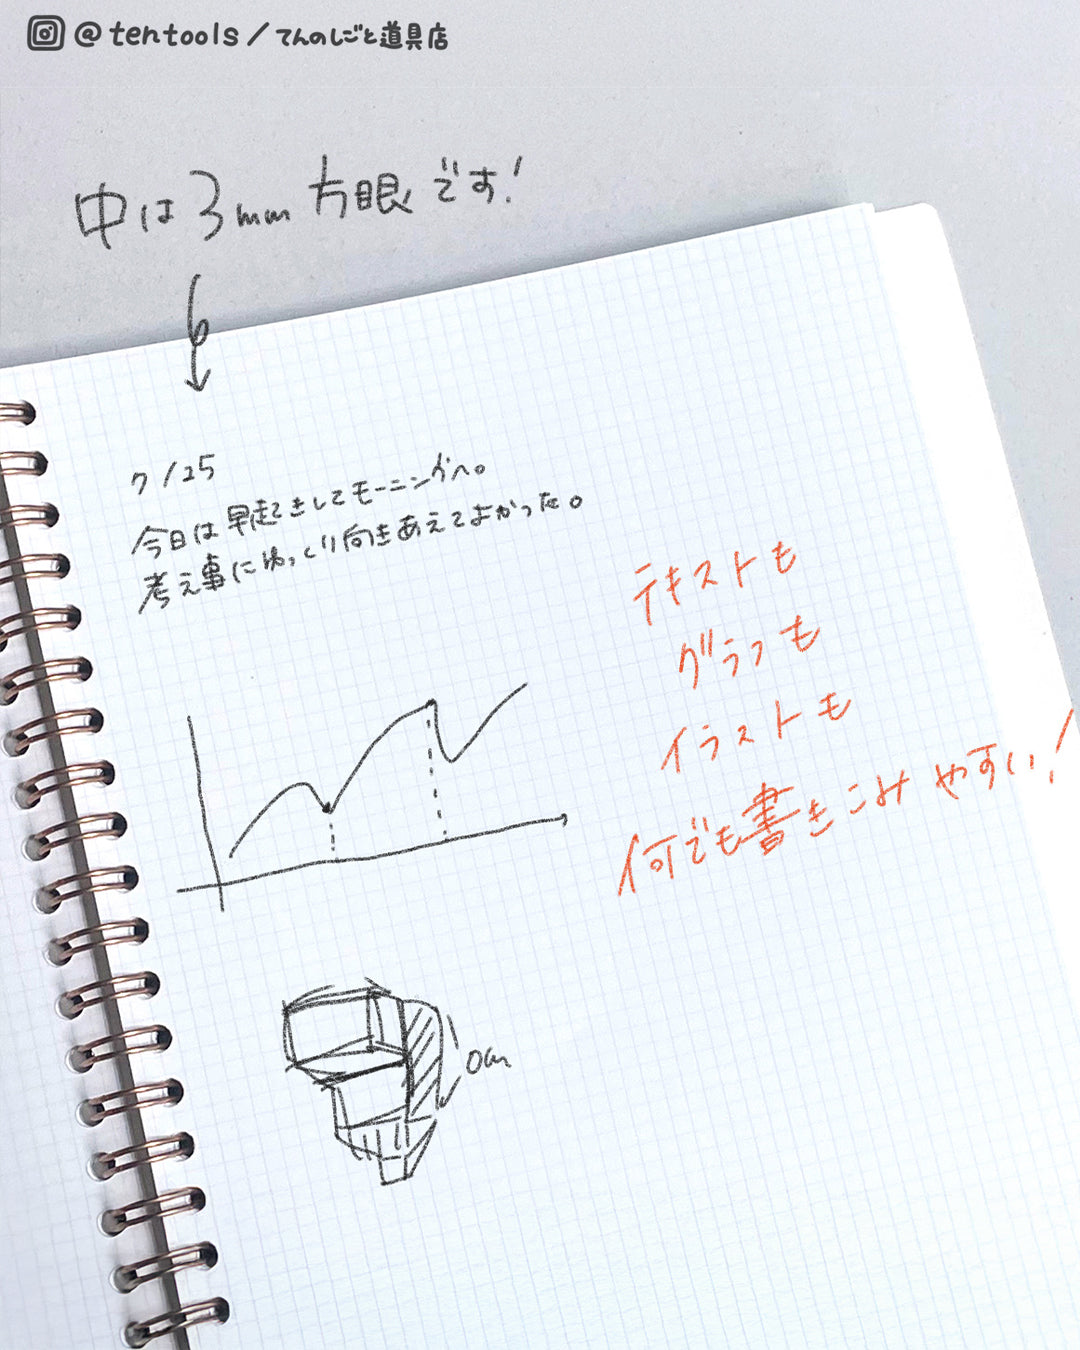 @tentools/てんのしごと道具店
中は3mm方眼です!
7/25
今日は早起きしてモーニングへ。
考え事にゆっくり向きあえてよかった。
テキストも
グラフも
イラストも
何でも書きこみやすい!
0cm